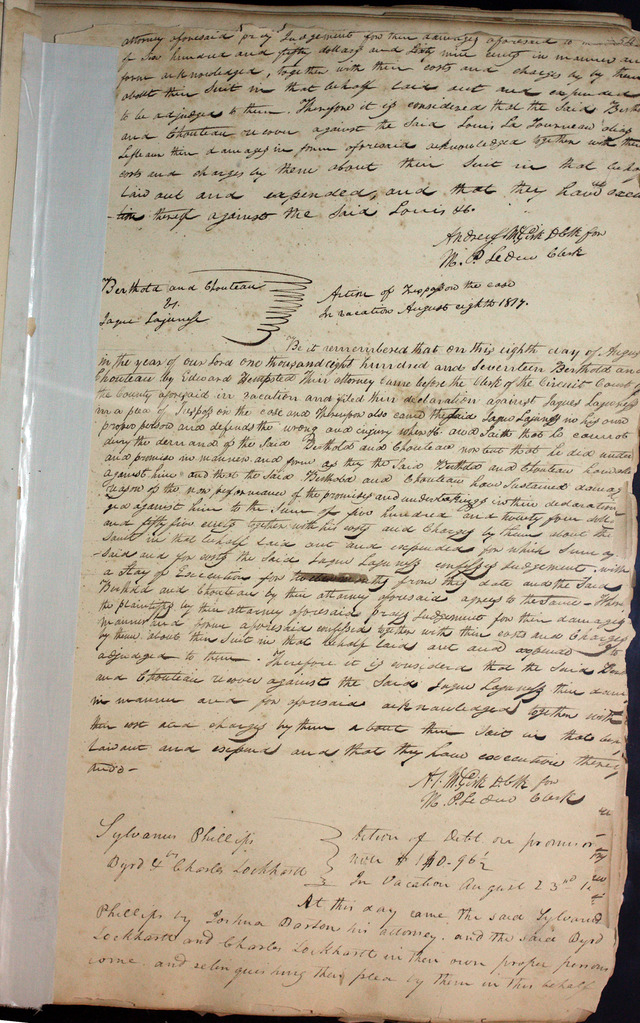 attorney aforesaid pray Judgement for their damages aforesaid to
of Six hundred and fifty dollars and Sixty nine cents in manner and
form acknowledged, together with their costs and charges by them
about their Suit in that behalf laid out and expended
to be adjudged to them. Therefore it is considered that the Said Berthold
and Chouteau recover against the Said Louis La Tourneau alias
Lafleur their damages in form aforesaid acknowledged together with their
costs and charges by them about their Suit in that behalf
laid out and expended, and that they have execu
-tion thereof against the Said Louis &c.
Andrew McGirk D Clk for
M. P. Leduc Clerk
Berthold and Chouteau
vs.
Jaque Lajuness
Action of Trespass on the case
In vacation August eighth 1817.
Be it remembered that on this eighth day of August
in the year of our Lord one thousand eight hundred and Seventeen Berthold and
Chouteau by Edward Hempsted their attorney came before the Clerk of the Circuit Court of
the County aforesaid in vacation and filed their declaration against Jaques Lajuness
in a plea of Trespass on the case and thereupon also came the Said Jaque Lajuness in his own
proper person and defends the wrong and injury when &c. and Saith that he cannot
deny the demand of the Said Berthold and Chouteau nor but that he did undertake
and promise in manner and form as they the Said Berthold and Chouteau have
against him and that the Said Berthold and Chouteau have Sustained damage
reason of the non performance of the promises and undertakings in their declaration
ged against him to the Sum of five hundred and twenty four doll
and fifty five cents together with his costs and Charges by them about the
Suit in that behalf laid out and expended for which Sum
-said and for costs the Said Jaque Lajuness confesses Judgement with
a Stay of Execution for from this date and the Said
Berthold and Chouteau by their attorney aforesaid agrees to the Same
the plaintiffs by their attorney aforesaid prays Judgement for their damages
manner and form aforesaid confessed together with their costs and Charges
by them about their Suit in that behalf laid out and expend to
adjudged to them. Therefore it is considered that the Said
and Chouteau recover against the Said Jaque Lajuness their dam
in manner and for aforesaid acknowledged together with
their cost and charges by them about their Suit in that
laid out and expend and that they have execution there

A. McGirk D. Clk for
M. P. Leduc Clerk
Sylvanus Phillips
vs
Byrd & Charles Lockhard
Action of Debt, on promissory
note $ 140-96½
In Vacation August 23rd
At this day came the said Sylvanus
Phillips by Joshua Barton his attorney and the said Byrd
Lockhardt and Charles Lockhardt in their own proper persons
come and relinquishing their plea by them in this behalf